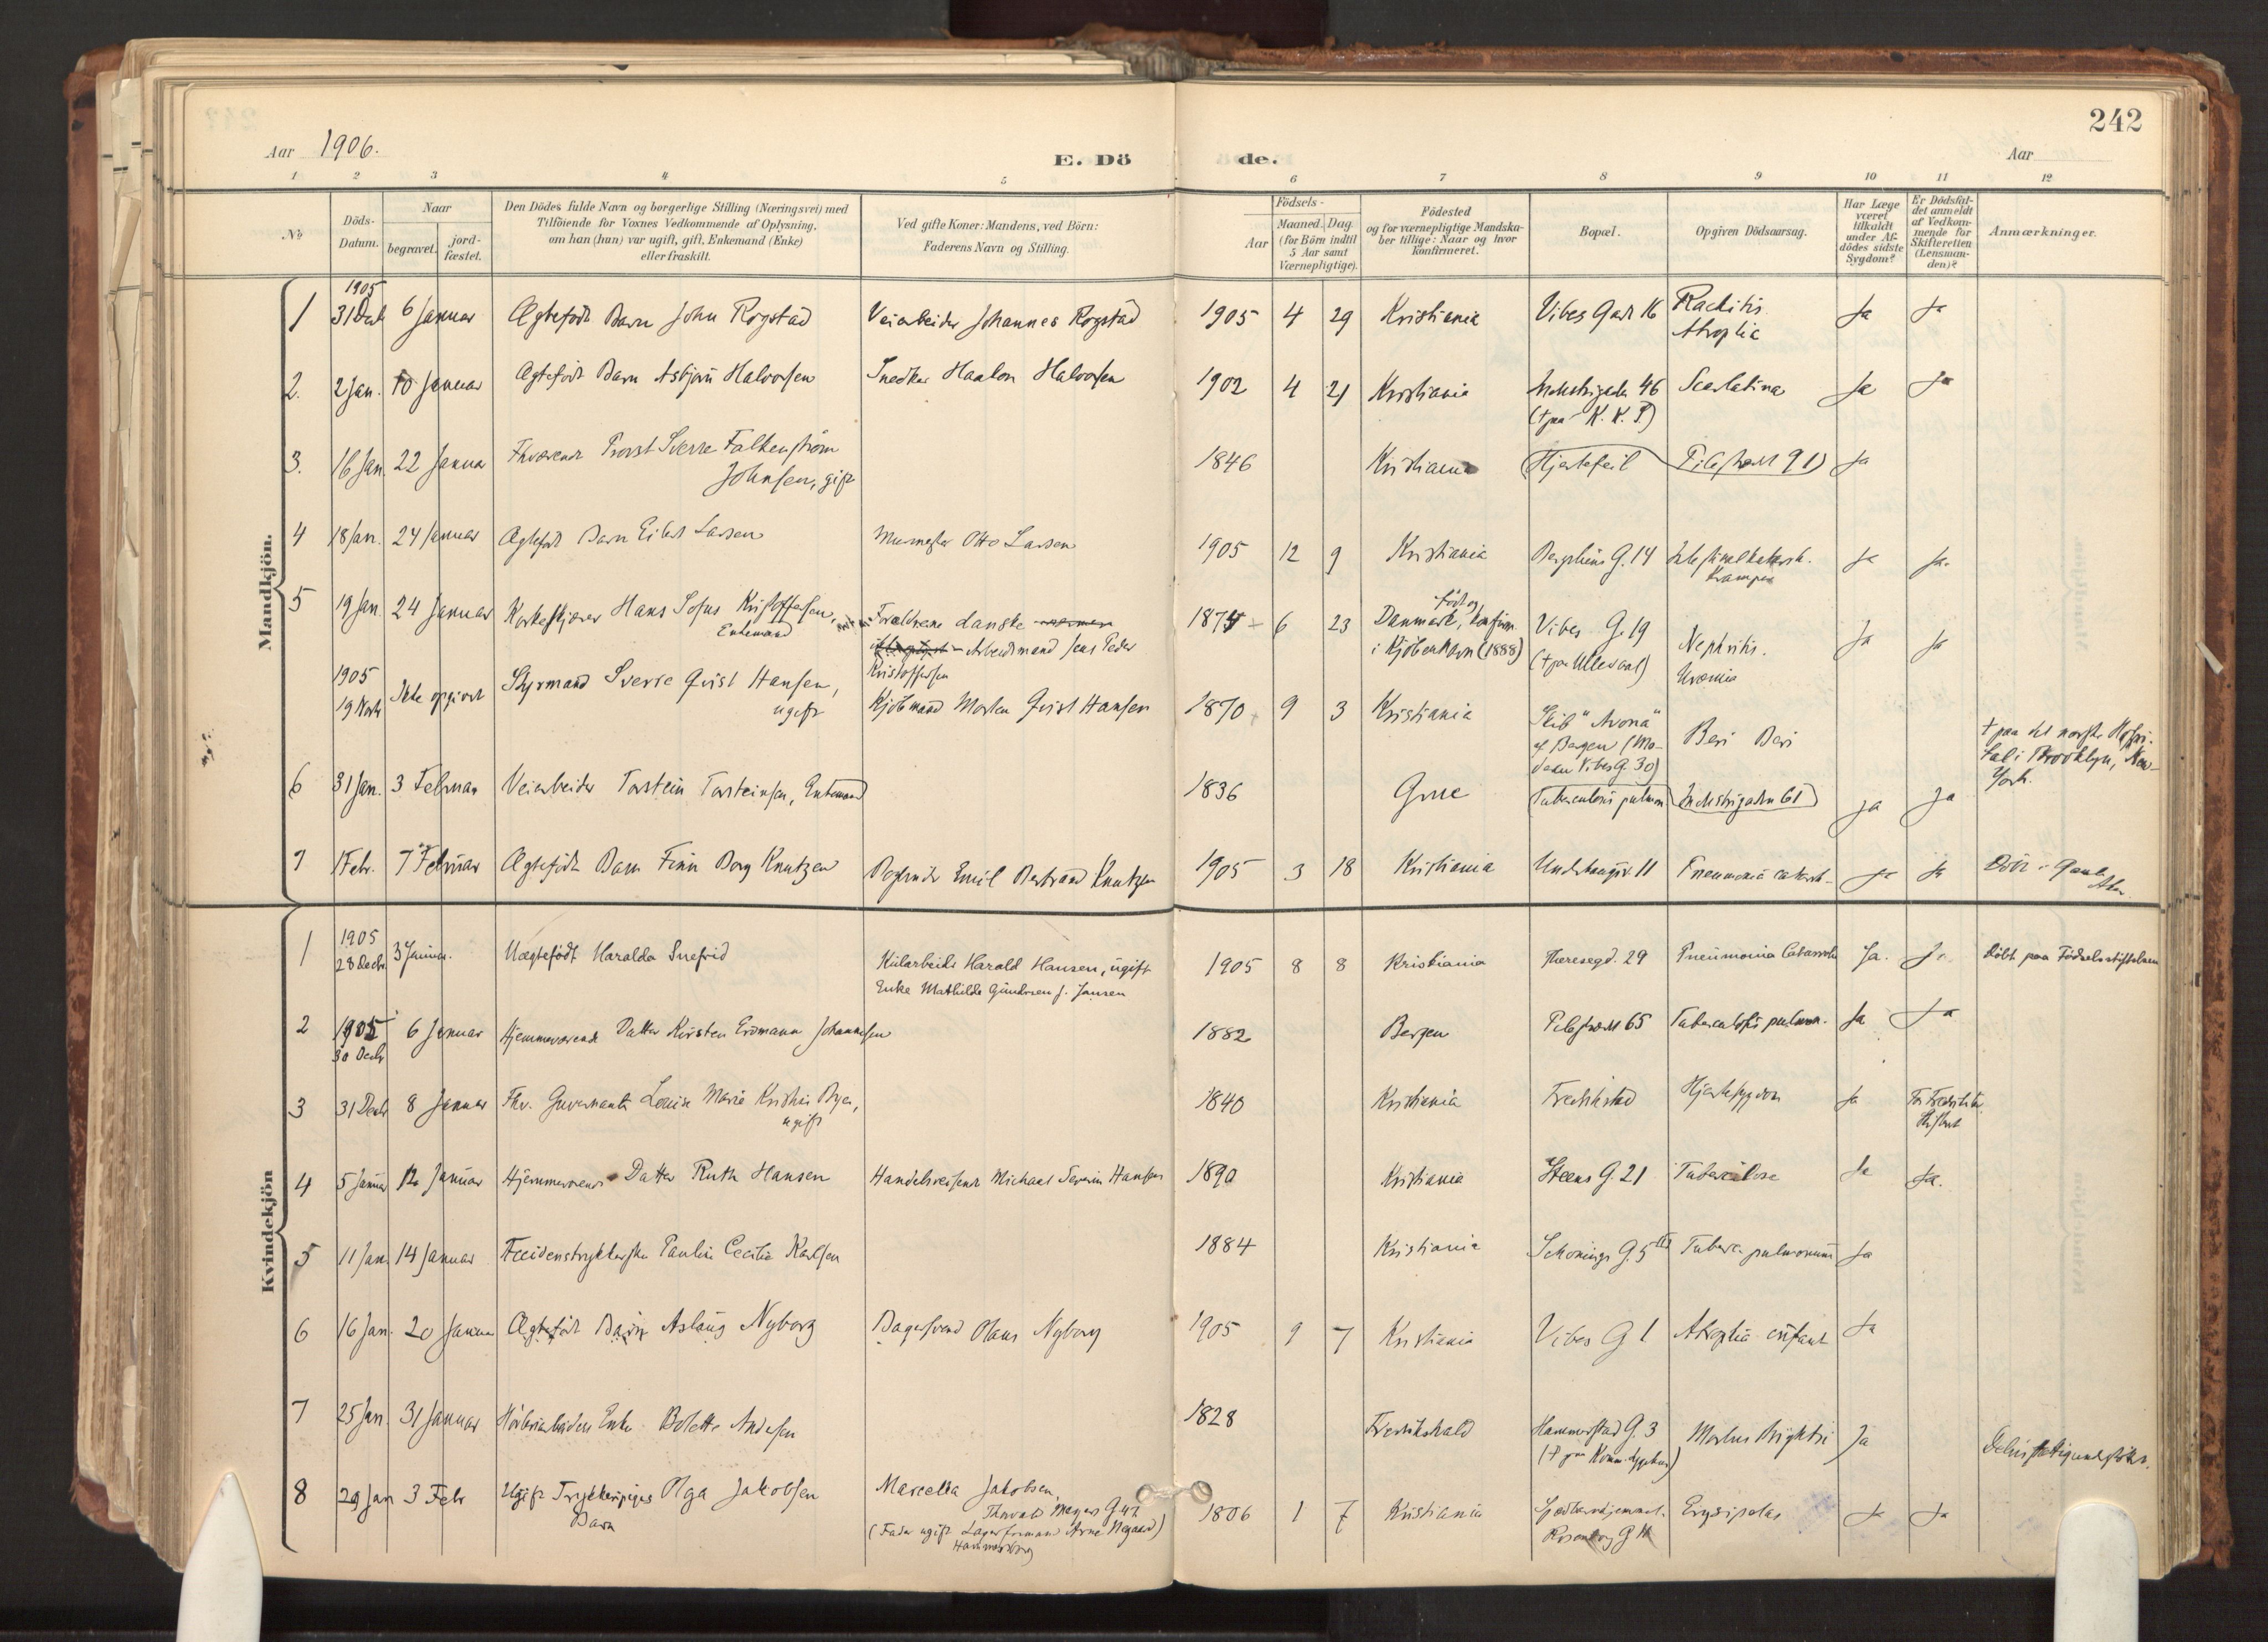 242
Aar 1906.
E. Dö de.
Aar
1 2 3 4 5 6 7 8 9 10 11 12
No
Döds-Datum.
Naar
begravet.
jord-fæstet.
Den Dödes fulde Navn og borgerlige Stilling (Næringsvei) med
Tilföiende for Voxnes Vedkommende af Oplysning,
om han (hun) var ugift, gift, Enkemand (Enke)
eller fraskilt.
Ved gifte Koner: Mandens, ved Börn:
Faderens Navn og Stilling.
Födsels-
Aar
Maaned. Dag.
(for Börn indtil
5 Aar samt
Værnepligtige).
Födested
og for værnepligtige Mandska-
ber tillige: Naar og hvor
konfirmeret.
Bopæl.
Opgiven Dödsaarsag.
Har Læge
været
tilkaldt
under Af-
dödes sidste
Sygdom?
Er Dödsfal-
det anmeldt
af Vedkom-
mende for
Skifteretten
(Lensman-
den)?
Anmærkninger.
Mandkjön.
1 1905 31 Decb 6 Januar Ægtefødt Barn John Rogstad Veiarbeider Johannes Rogstad 1905 4 29 Kristiania Vibes Gade 16 Rachitis Ja Ja
Atrophia
2. 2 Jan. 10 Januar Ægtefødt Barn Asbjørn Halvorsen Snedker Haakon Halvorsen 1902 4 21 Kristiania Industrigaden 46 Scarlatina Ja Ja
(† paa K. K. S.)
3. 16 Jan. 22 Januar Fhværende Provst Sverre Falkenstrøm 1846 Kristiania Hjertefeil Pilestræd 91 Ja
Johnsen, gift
4 18 Jan. 24 Januar Ægtefødt Barn Eilert Larsen Murmester Otto Larsen 1905 12 9 Kristiania Bergsliens G. 14 Ja Ja.
Krampe
5 19 Jan. 24 Januar Korkeskjærer Hans Sofus Kristoffersen, Forældrene danske 6 23 født og
Enkemand Arbeidsmand Jens Peder Danmark, konfirm. Vibes G. 19 Nephritis. Ja Ja
Kristoffersen i Kjøbenhavn (1888) († paa Ullevaal) Uræmia
1905
19 Novb Ikke opgivet Styrmand Sverre Qvist Hansen, Kjøbmand Morten Qvist Hansen 1870 9 3 Kristiania Skib "Avona" Beri Beri † paa det norske Hospi-
ugift af Bergen (Mo- tal i Brooklyn, New-
deren Vibes G. 30) York.
6 31 Jan. 3 Februar Veiarbeider Torstein Torsteinsen, Enkemand 1836 Grue Tuberculosis pulmon Industrigaden 61 Ja Ja
7 1 Febr. 7 Februar Ægtefødt Barn Finn Borg Knutzen Emil Bertrand Knutzen 1905 3 18 Kristiania Underhaugsv. 11 Pneumonia catarrh. Ja Ja Døbt i Gamle
Aker
Kvindekjön
1 1905 28 Decbr. 3 Januar. Uægtefødt Haralda Snefrid Kularbeider Harald Hansen, ugift 1905 8 8 Kristiania Theresegd. 29 Pneumonia Catarrhalis Ja. Ja døbt paa Fødselsstiftelsen
Enke Mathilde Gundersen f. Jansen
2 1905 30 Decb 6 Januar Hjemmeværende Datter Kirsten Ermann Johannesen 1882 Bergen Pilestræd 65 Tuberculosis pulmon. Ja Ja
3 31 Decb 8 Januar Fhv. Guvernante Louise Marie Kristine Byen, 1840 Kristiania Fredrikstad Hjertesygdom Ja For Fredrikstads
ugift Skifteret
4 5 Januar 12 Januar Hjemmeværende Datter Ruth Hansen Handelsreisende Michael Severin Hansen 1890 Kristiania Steens G. 21 Tuberculose Ja Ja.
5 11 Jan. 14 Januar Pauline Cecilie Karlsen 1884 Kristiania Schønings G. 5 III Tuberc. pulmonum Ja
6 16 Jan. 20 Januar Ægtefødt Barn Aslaug Nyborg Bagersvend Olaus Nyborg 1905 9 7 Kristiania Vibes G 1 Atrophia infant Ja
7 25 Jan. 31 Januar Enke Bolette Andersen 1828 Fredrikshald Hammerstad G. 3 Morbus Brightii Ja
(† paa Komm. sygehus)
8 29 Jan 3 Febr Ugift Olga Jakobsen Marcella Jakobsen, 1806 1 7 Kristiania Spædbarnhjemmet. Erysipelas Ja Ja
Barn Thorvald Meyers G 47 Rosenborg G
(Fader ugift Lagerformand Arne Nygaard)